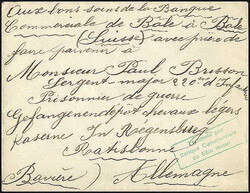 Aux bons soins de la Banque
Commerciale de Bâle à Bâle
(Suisse) avec prière de
faire parvenir à
Monsieur Paul Brisson
Sergent major 220e d'Inf
Prisonnier de guerre
Gefangenendepôt chevaux légers
Kaserne In Regensburg
Ratisbonne
Banque Commerciale
de Bâle
Bavière) Allemagne